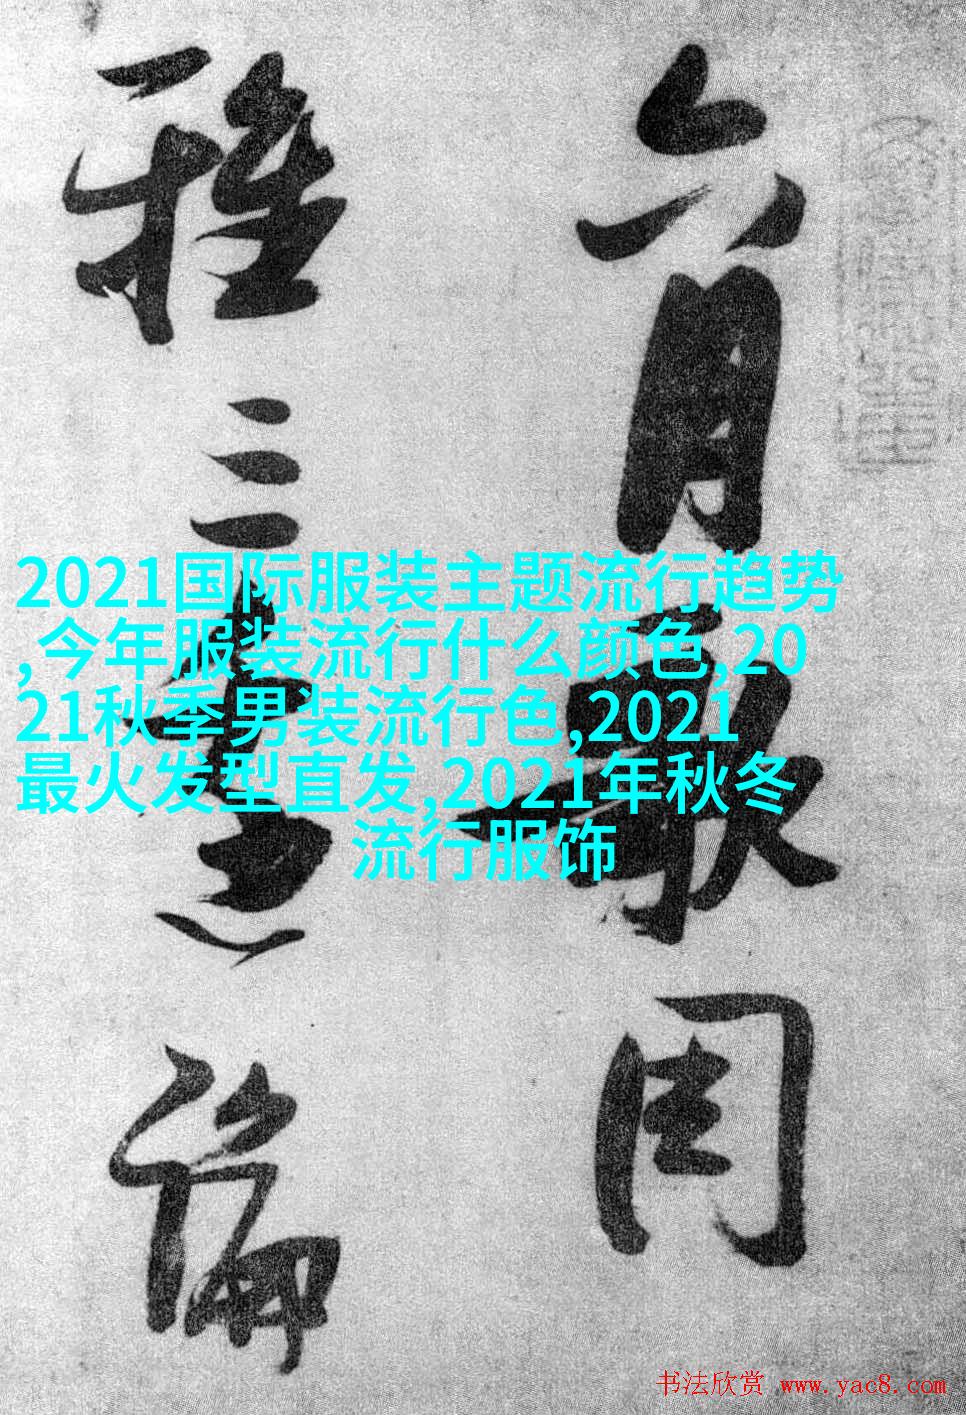 六月歌周
雅三
2021国际服装主题流行趋势
,今年服装流行什么颜色,20
21秋季男装流行色,2021
最火发型直发,2021年秋冬
流行服饰
书法欣赏 www.yac8.com